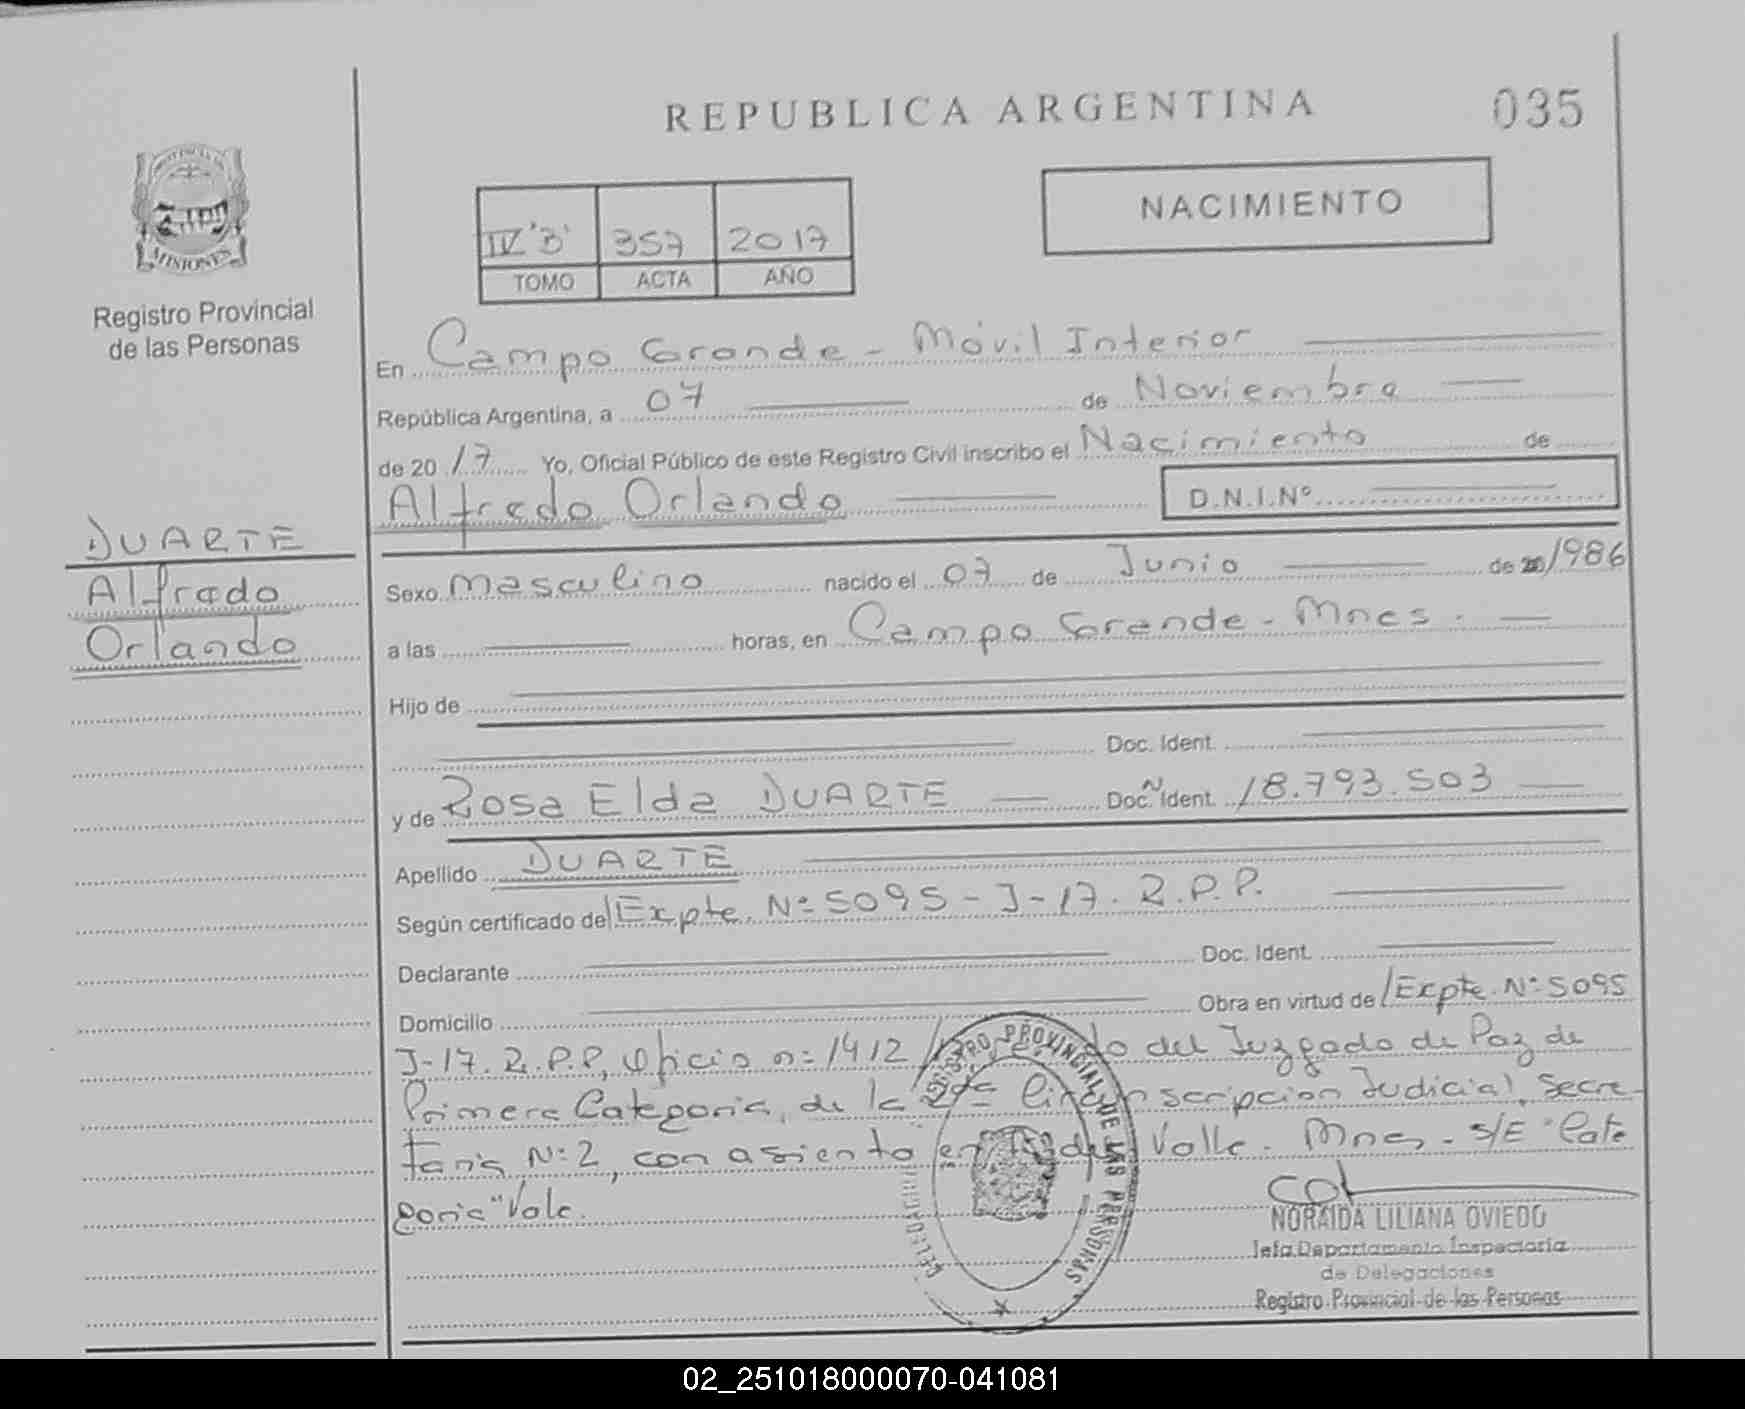 REPUBLICA ARGENTINA
035
PROVINCIA DE
MISIONES
Registro Provincial
de las Personas
NACIMIENTO
IV "B" 357 2017
TOMO ACTA AÑO
En Campo Grande - Móvil Interior
República Argentina, a 07 de Noviembre
de 20 17 Yo, Oficial Público de este Registro Civil inscribo el Nacimiento de
Alfredo Orlando D.N.I.Nº
DUARTE
Alfredo
Orlando
Sexo masculino nacido el 07 de Junio de 1986
a las horas, en Campo Grande - Mnes.
Hijo de
Doc. Ident.
y de Rosa Elda DUARTE Doc. Ident. 18.793.503
Apellido DUARTE
Según certificado de Expte. Nº 5095 - J-17. R.P.P.
Declarante Doc. Ident.
Domicilio Obra en virtud de Expte. Nº 5095
J-17. R.P.P, Oficio nº 1412 del Juzgado de Paz de
Primera Categoria, de la 2da Circunscripcion Judicial, Secre-
taria Nº 2, con asiento en Valle - Mnes - S/E "Cate
goria" Vale.
REGISTRO PROVINCIAL DE LAS PERSONAS
NORAIDA LILIANA OVIEDO
Jefa Departamento Inspectoría
de Delegaciones
Registro Provincial de las Personas
02_251018000070-041081